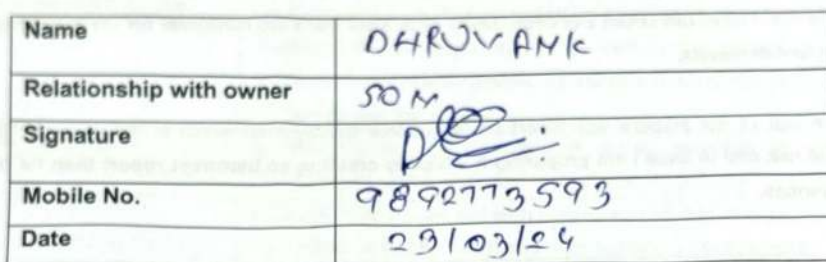 Name DHRUVANK
Relationship with owner SON
Signature
Mobile No. 9892773593
Date 23/03/24